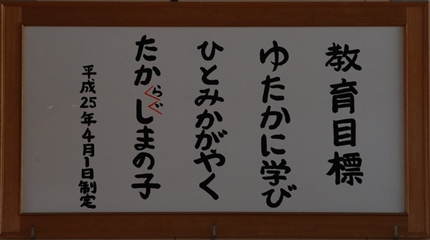 教育目標
ゆたかに学び
ひとみかがやく
たからぐしまの子
平成25年4月1日制定